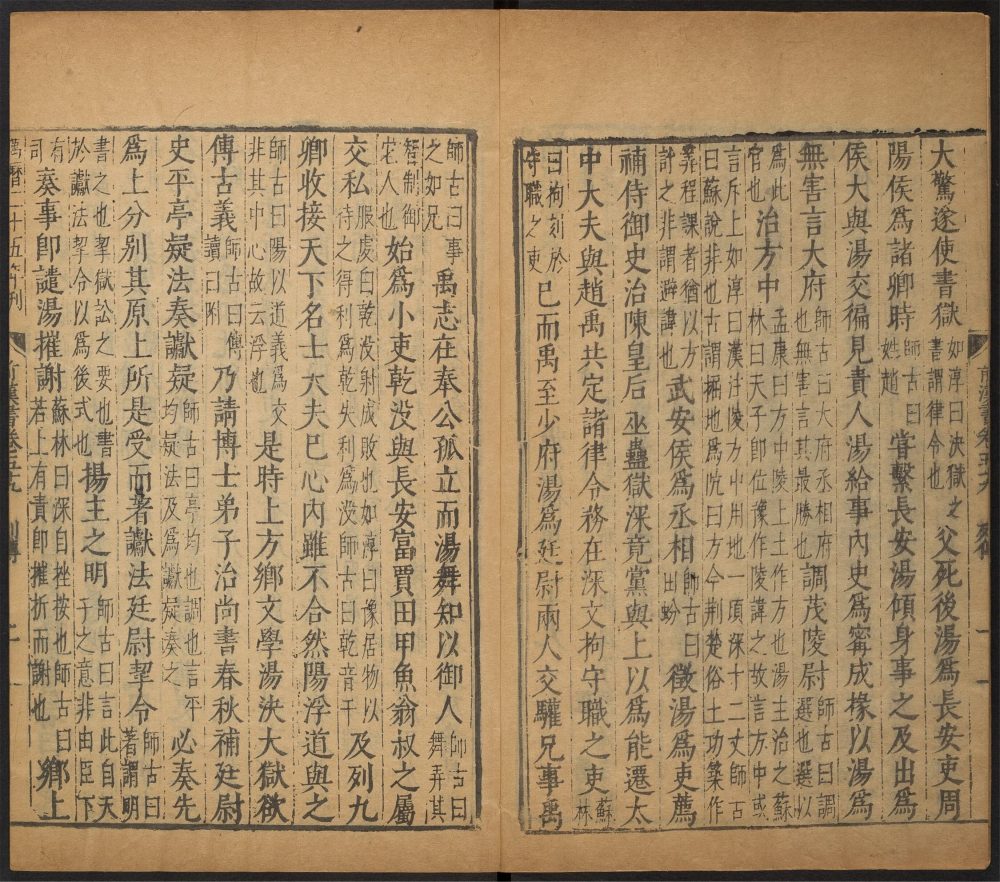 大驚遂使書獄如淳曰決獄之書謂律令也父死後湯爲長安吏周
陽侯爲諸卿時師古曰姓趙嘗繫長安湯傾身事之及出爲
侯大與湯交徧見貴人湯給事內史爲甯成掾以湯爲
無害言大府師古曰大府丞相府也無害言其最勝也調茂陵尉師古曰調選也選以
爲此官也治方中孟康曰方中陵上土作方也湯主治之蘇林曰天子即位豫作陵諱之故言方中或
言斥上如淳曰漢注陵方中用地一頃深十二丈師古曰蘇說非也古謂掘地爲阬曰方今荆楚俗土功築作
筭程課者猶以方計之非謂避諱也武安侯爲丞相師古曰田蚡徵湯爲吏薦
補侍御史治陳皇后巫蠱獄深竟黨與上以爲能遷太
中大夫與趙禹共定諸律令務在深文拘守職之吏蘇林
曰拘刻於守職之吏已而禹至少府湯爲廷尉兩人交驩兄事禹
師古曰事之如兄禹志在奉公孤立而湯舞知以御人師古曰舞弄其
智制御它人也始爲小吏乾没與長安富賈田甲魚翁叔之屬
交私服虔曰乾没射成敗也如淳曰豫居物以待之得利爲乾失利爲没師古曰乾音干及列九
卿收接天下名士大夫已心內雖不合然陽浮道與之
師古曰陽以道義爲交非其中心故云浮也是時上方鄉文學湯決大獄欲
傅古義師古曰傅讀曰附乃請博士弟子治尚書春秋補廷尉
史平亭疑法奏讞疑師古曰亭均也調也言平均疑法及爲讞疑奏之必奏先
爲上分别其原上所是受而著讞法廷尉挈令師古曰著謂明
書之也挈獄訟之要也書於讞法挈令以爲後式也揚主之明師古曰言此自天子之意非由臣下
有司奏事卽譴湯摧謝蘇林曰深自挫按也師古曰若上有責卽摧折而謝也鄉上